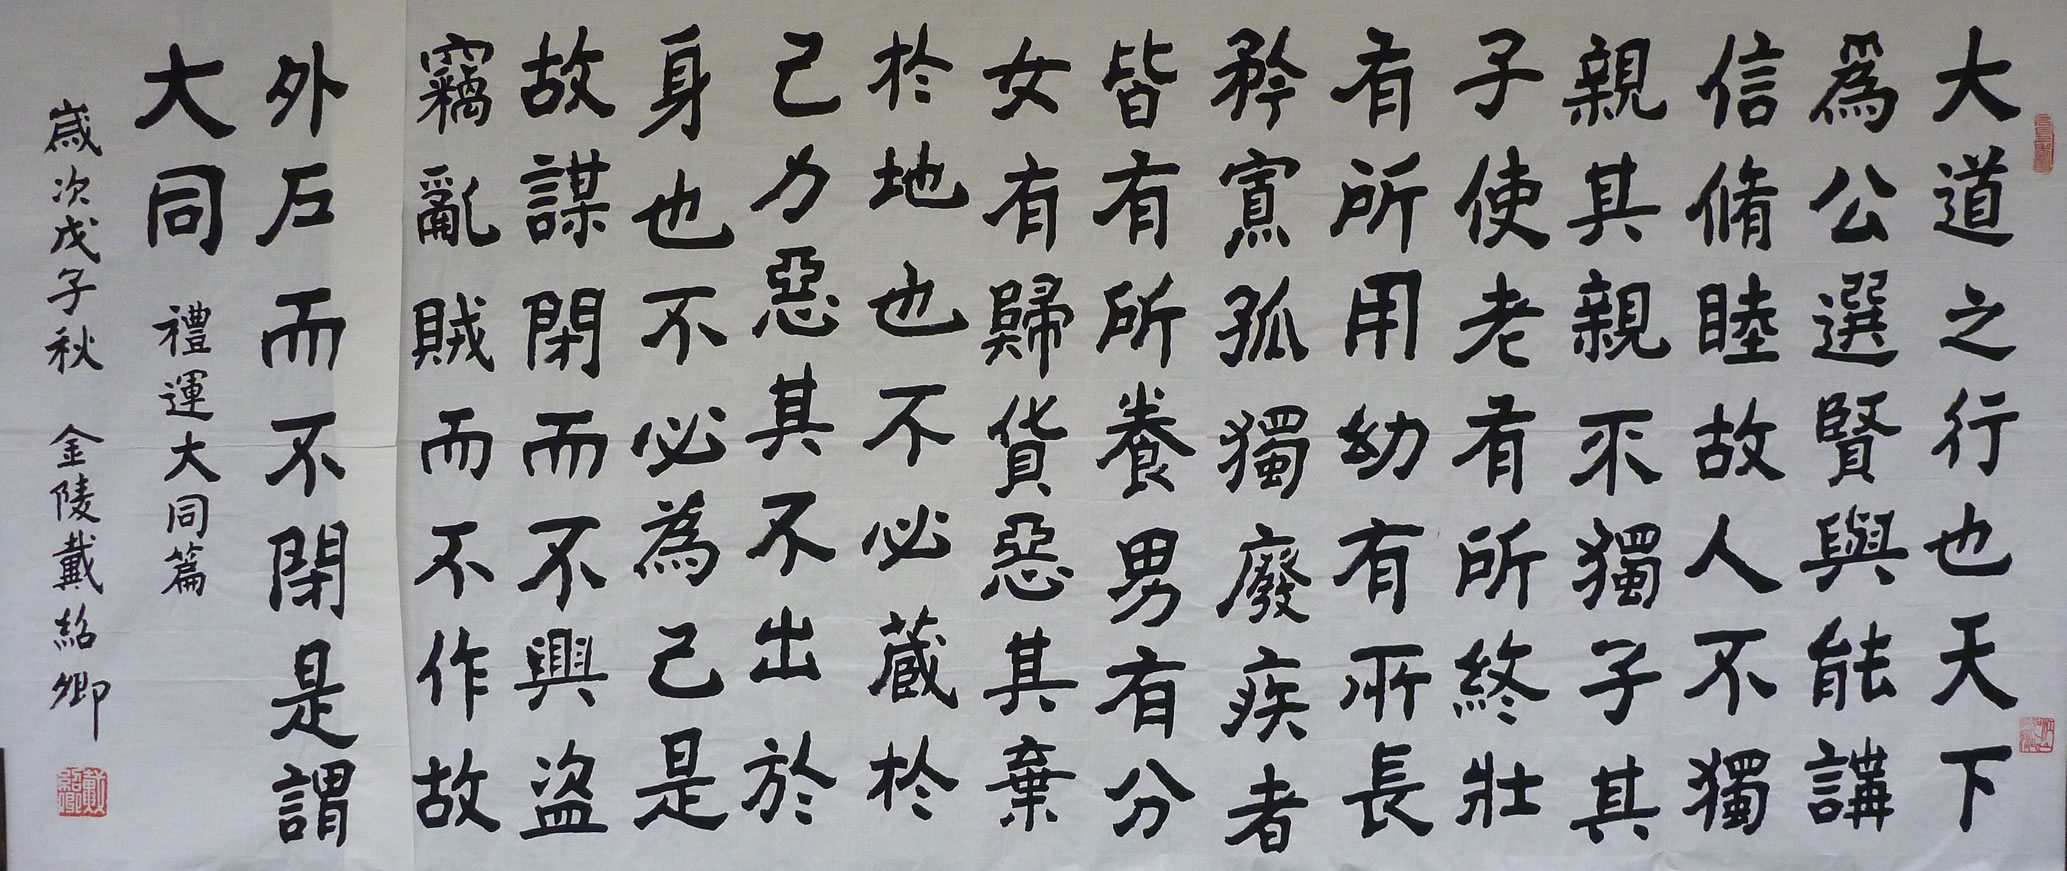 大道之行也天下
爲公選賢與能講
信脩睦故人不獨
親其親不獨子其
子使老有所終壯
有所用幼有所長
矜寡孤獨廢疾者
皆有所養男有分
女有歸貨惡其棄
於地也不必藏於
己力惡其不出於
身也不必為己是
故謀閉而不興盜
竊亂賊而不作故
外戶而不閉是謂
大同 禮運大同篇
歲次戊子秋 金陵戴紹卿
戴紹卿